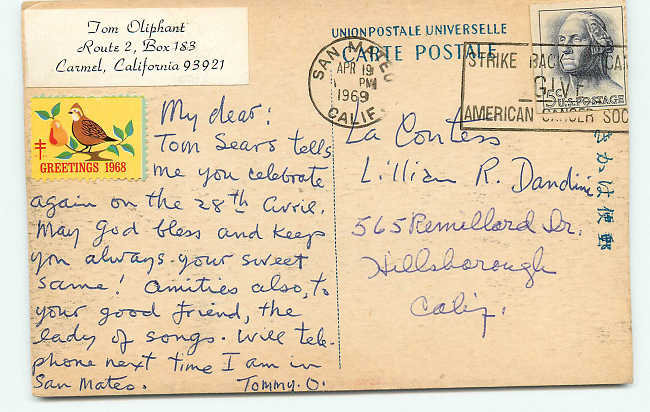 Tom Oliphant
Route 2, Box 183
Carmel, California 93921
GREETINGS 1968
My dear:
Tom Sears tells
me you celebrate
again on the 28th Avril.
May God bless and keep
you always your sweet
same! Amities also, to
your good friend, the
lady of songs. Will tele-
phone next time I am in
San Mateo.
Tommy. O.
UNION POSTALE UNIVERSELLE
CARTE POSTALE
SAN MATEO
APR 19
PM
1969
CALIF.
STRIKE BACK
GIVE
AMERICAN CANCER SOC
5¢ U.S. POSTAGE
La Contess
Lillian R. Dandini
565 Remillard Dr.
Hillsborough
Calif.
郵便はがき